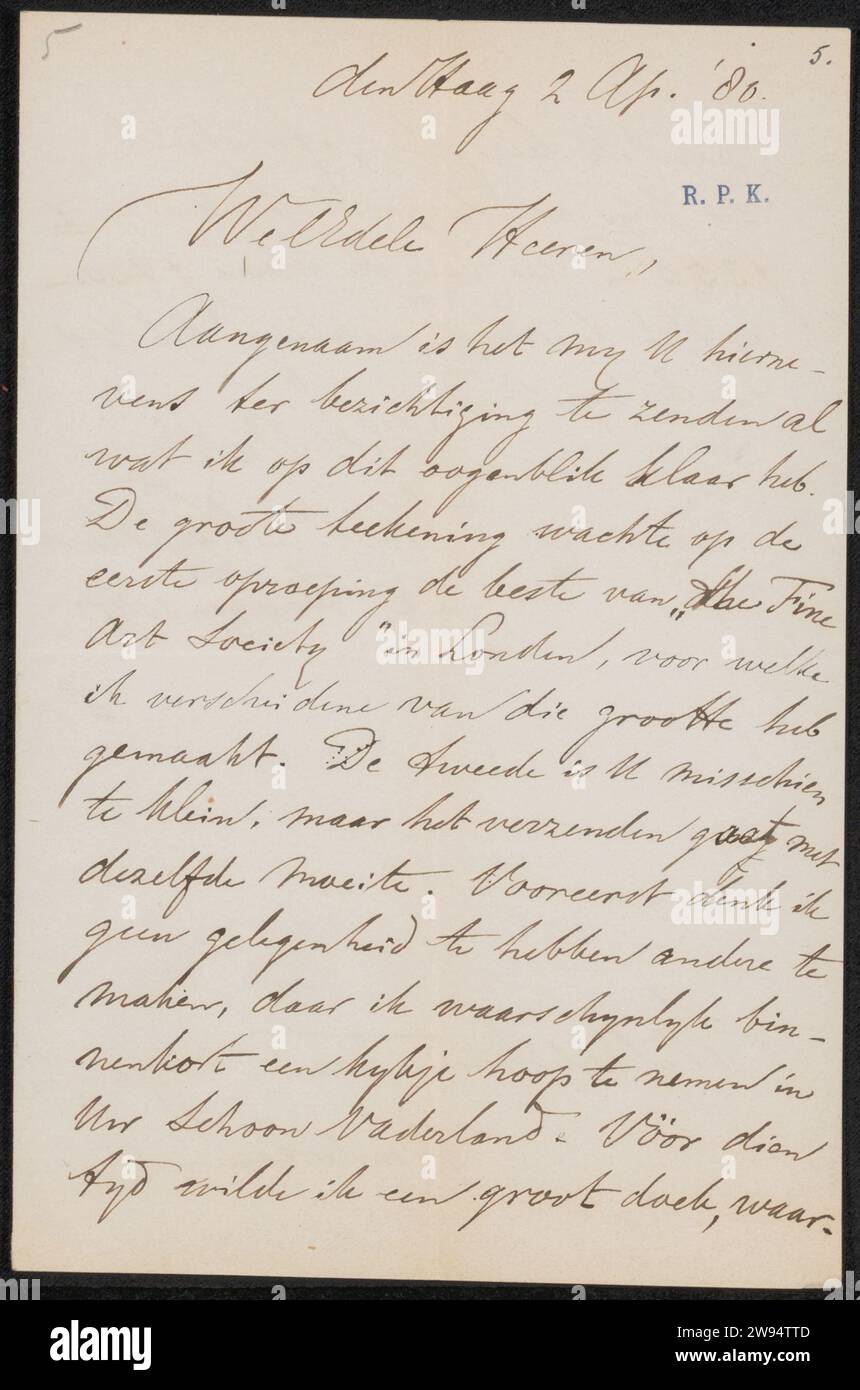 5
5.
den Haag 2 Ap. '80.
R. P. K.
WelEdele Heeren,
Aangenaam is het my U hierne-
vens ter bezichtiging te zenden al
wat ik op dit oogenblik klaar heb.
De groote teekening wachte op de
eerste oproeping de beste van „the Fine
Art Society" in Londen, voor welke
ik verscheidene van die grootte heb
gemaakt. De tweede is U misschien
te klein, maar het verzenden gaat met
dezelfde moeite. Vooreerst denk ik
geen gelegenheid te hebben andere te
maken, daar ik waarschynlyk bin-
nenkort een kykje hoop te nemen in
Uw schoon Vaderland. Vóór dien
tyd wilde ik een groot doek, waar-
alamy
alamy
Image ID: 2W94TTD
www.alamy.com